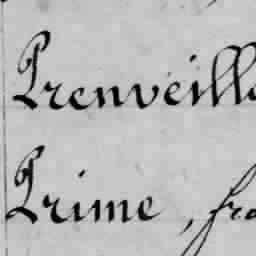 Prenveille
Prime, fra